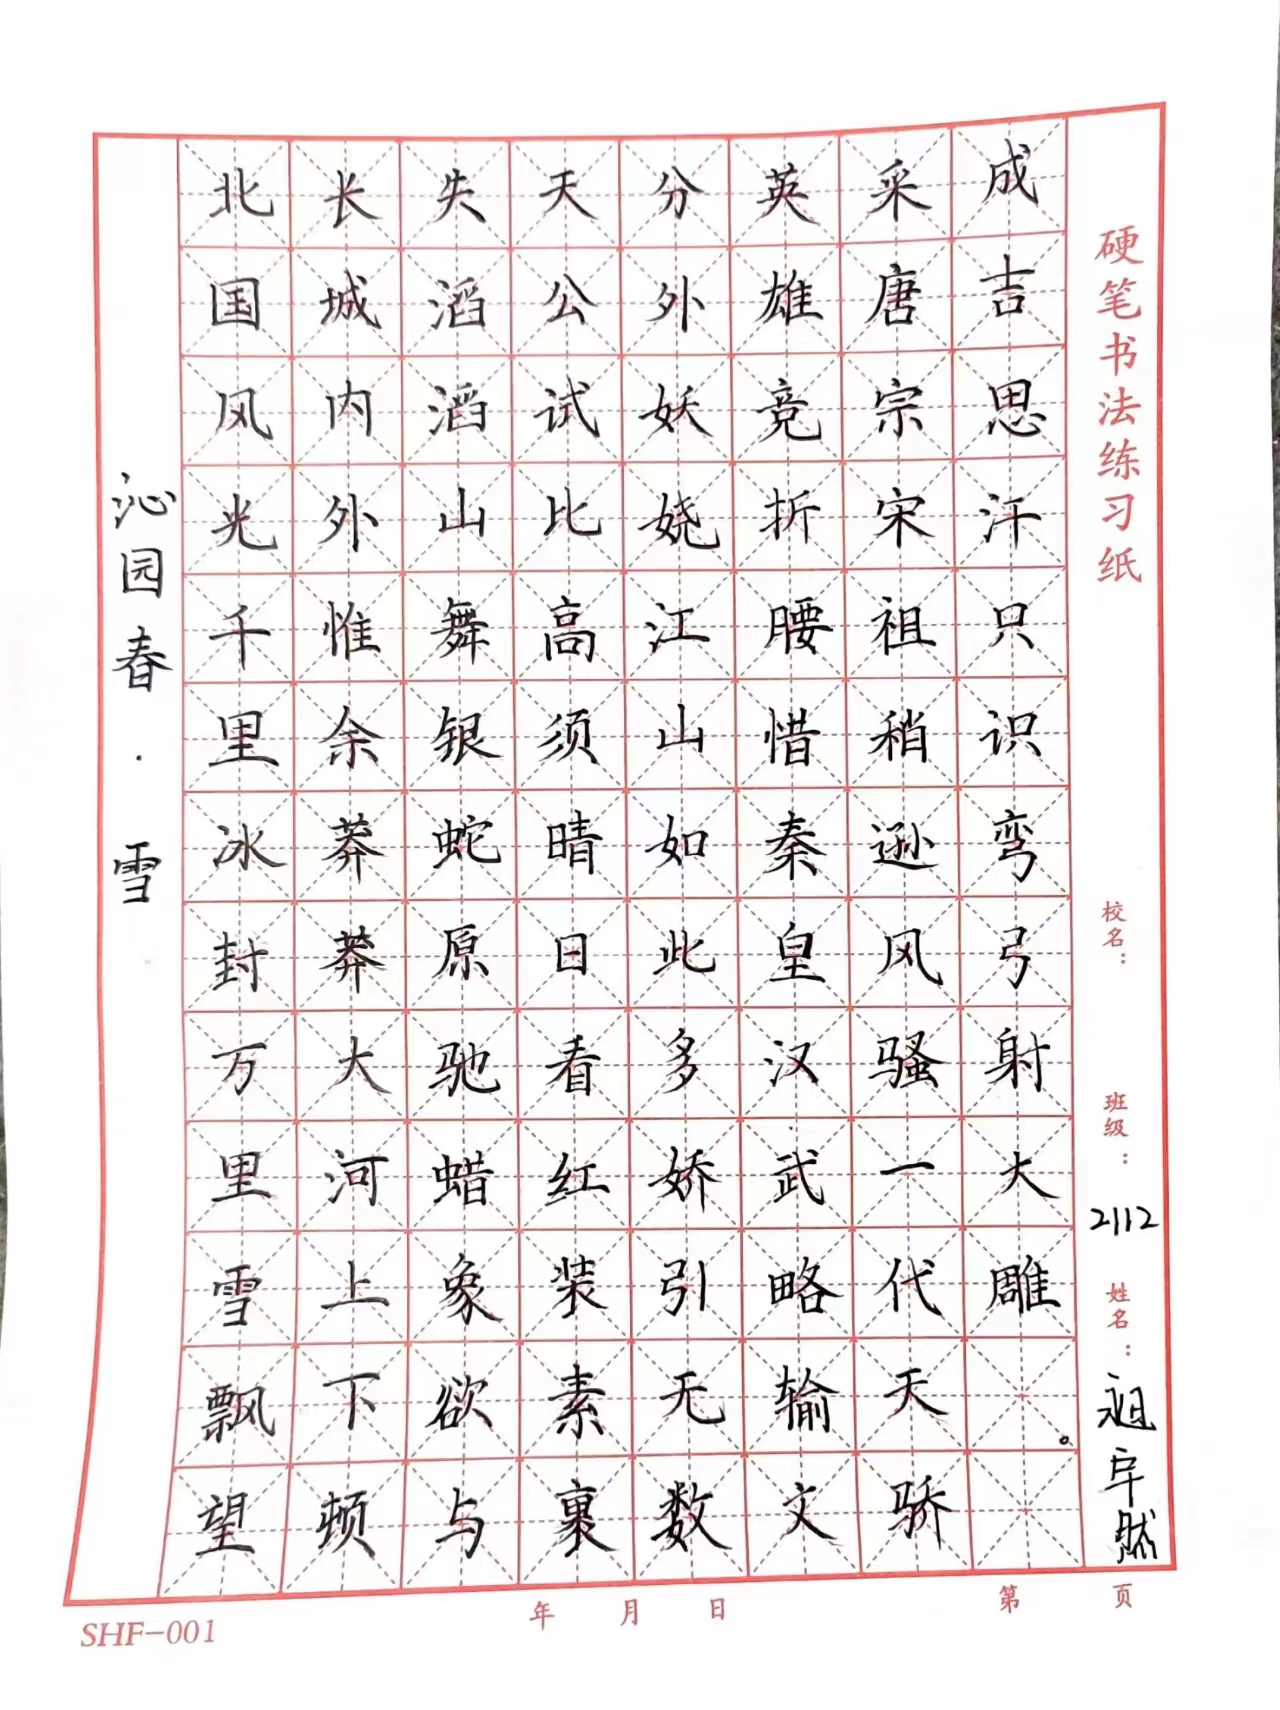 沁园春·雪
北国风光千里冰封万里雪飘望
长城内外惟余莽莽大河上下顿
失滔滔山舞银蛇原驰蜡象欲与
天公试比高须晴日看红装素裹
分外妖娆江山如此多娇引无数
英雄竞折腰惜秦皇汉武略输文
采唐宗宋祖稍逊风骚一代天骄
成吉思汗只识弯弓射大雕。
硬笔书法练习纸
校名：
班级：2112
姓名：
SHF-001
年 月 日
第 页